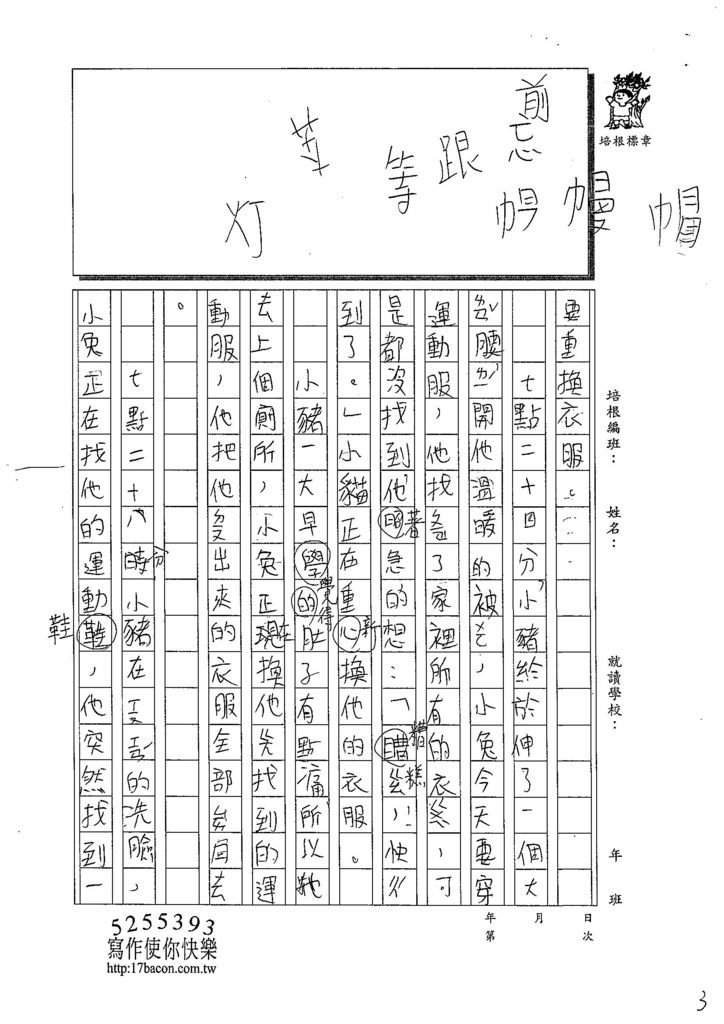 前
忘
跟
等
灯
帽
培根標章
培根編班：
姓名：
就讀學校：
年 班
年 月 日
第 次
要重換衣服。……
七點二十四分小豬終於伸了一個大
ㄌㄢˇ腰，ㄌㄧˊ開他溫暖的被ㄗ，小兔今天要穿
運動服，他找ㄅㄧㄢˋ了家裡所有的衣ㄍㄨㄟˋ，可
是都沒找到他著急的想：「糟糕！快ㄔˊ
到了。」小貓正在重新換他的衣服。
小豬一大早覺得肚子有點痛所以牠
去上個廁所，小兔正在換他ㄍㄤ找到的運
動服，他把他ㄋㄚˊ出來的衣服全部ㄈㄤˋ回去
。
七點二十八分小豬在ㄎㄨㄞˋㄙㄨˋ的洗臉，
小兔正在找他的運動鞋，他突然找到一
鞋
5255393
寫作使你快樂
http:17bacon.com.tw
3